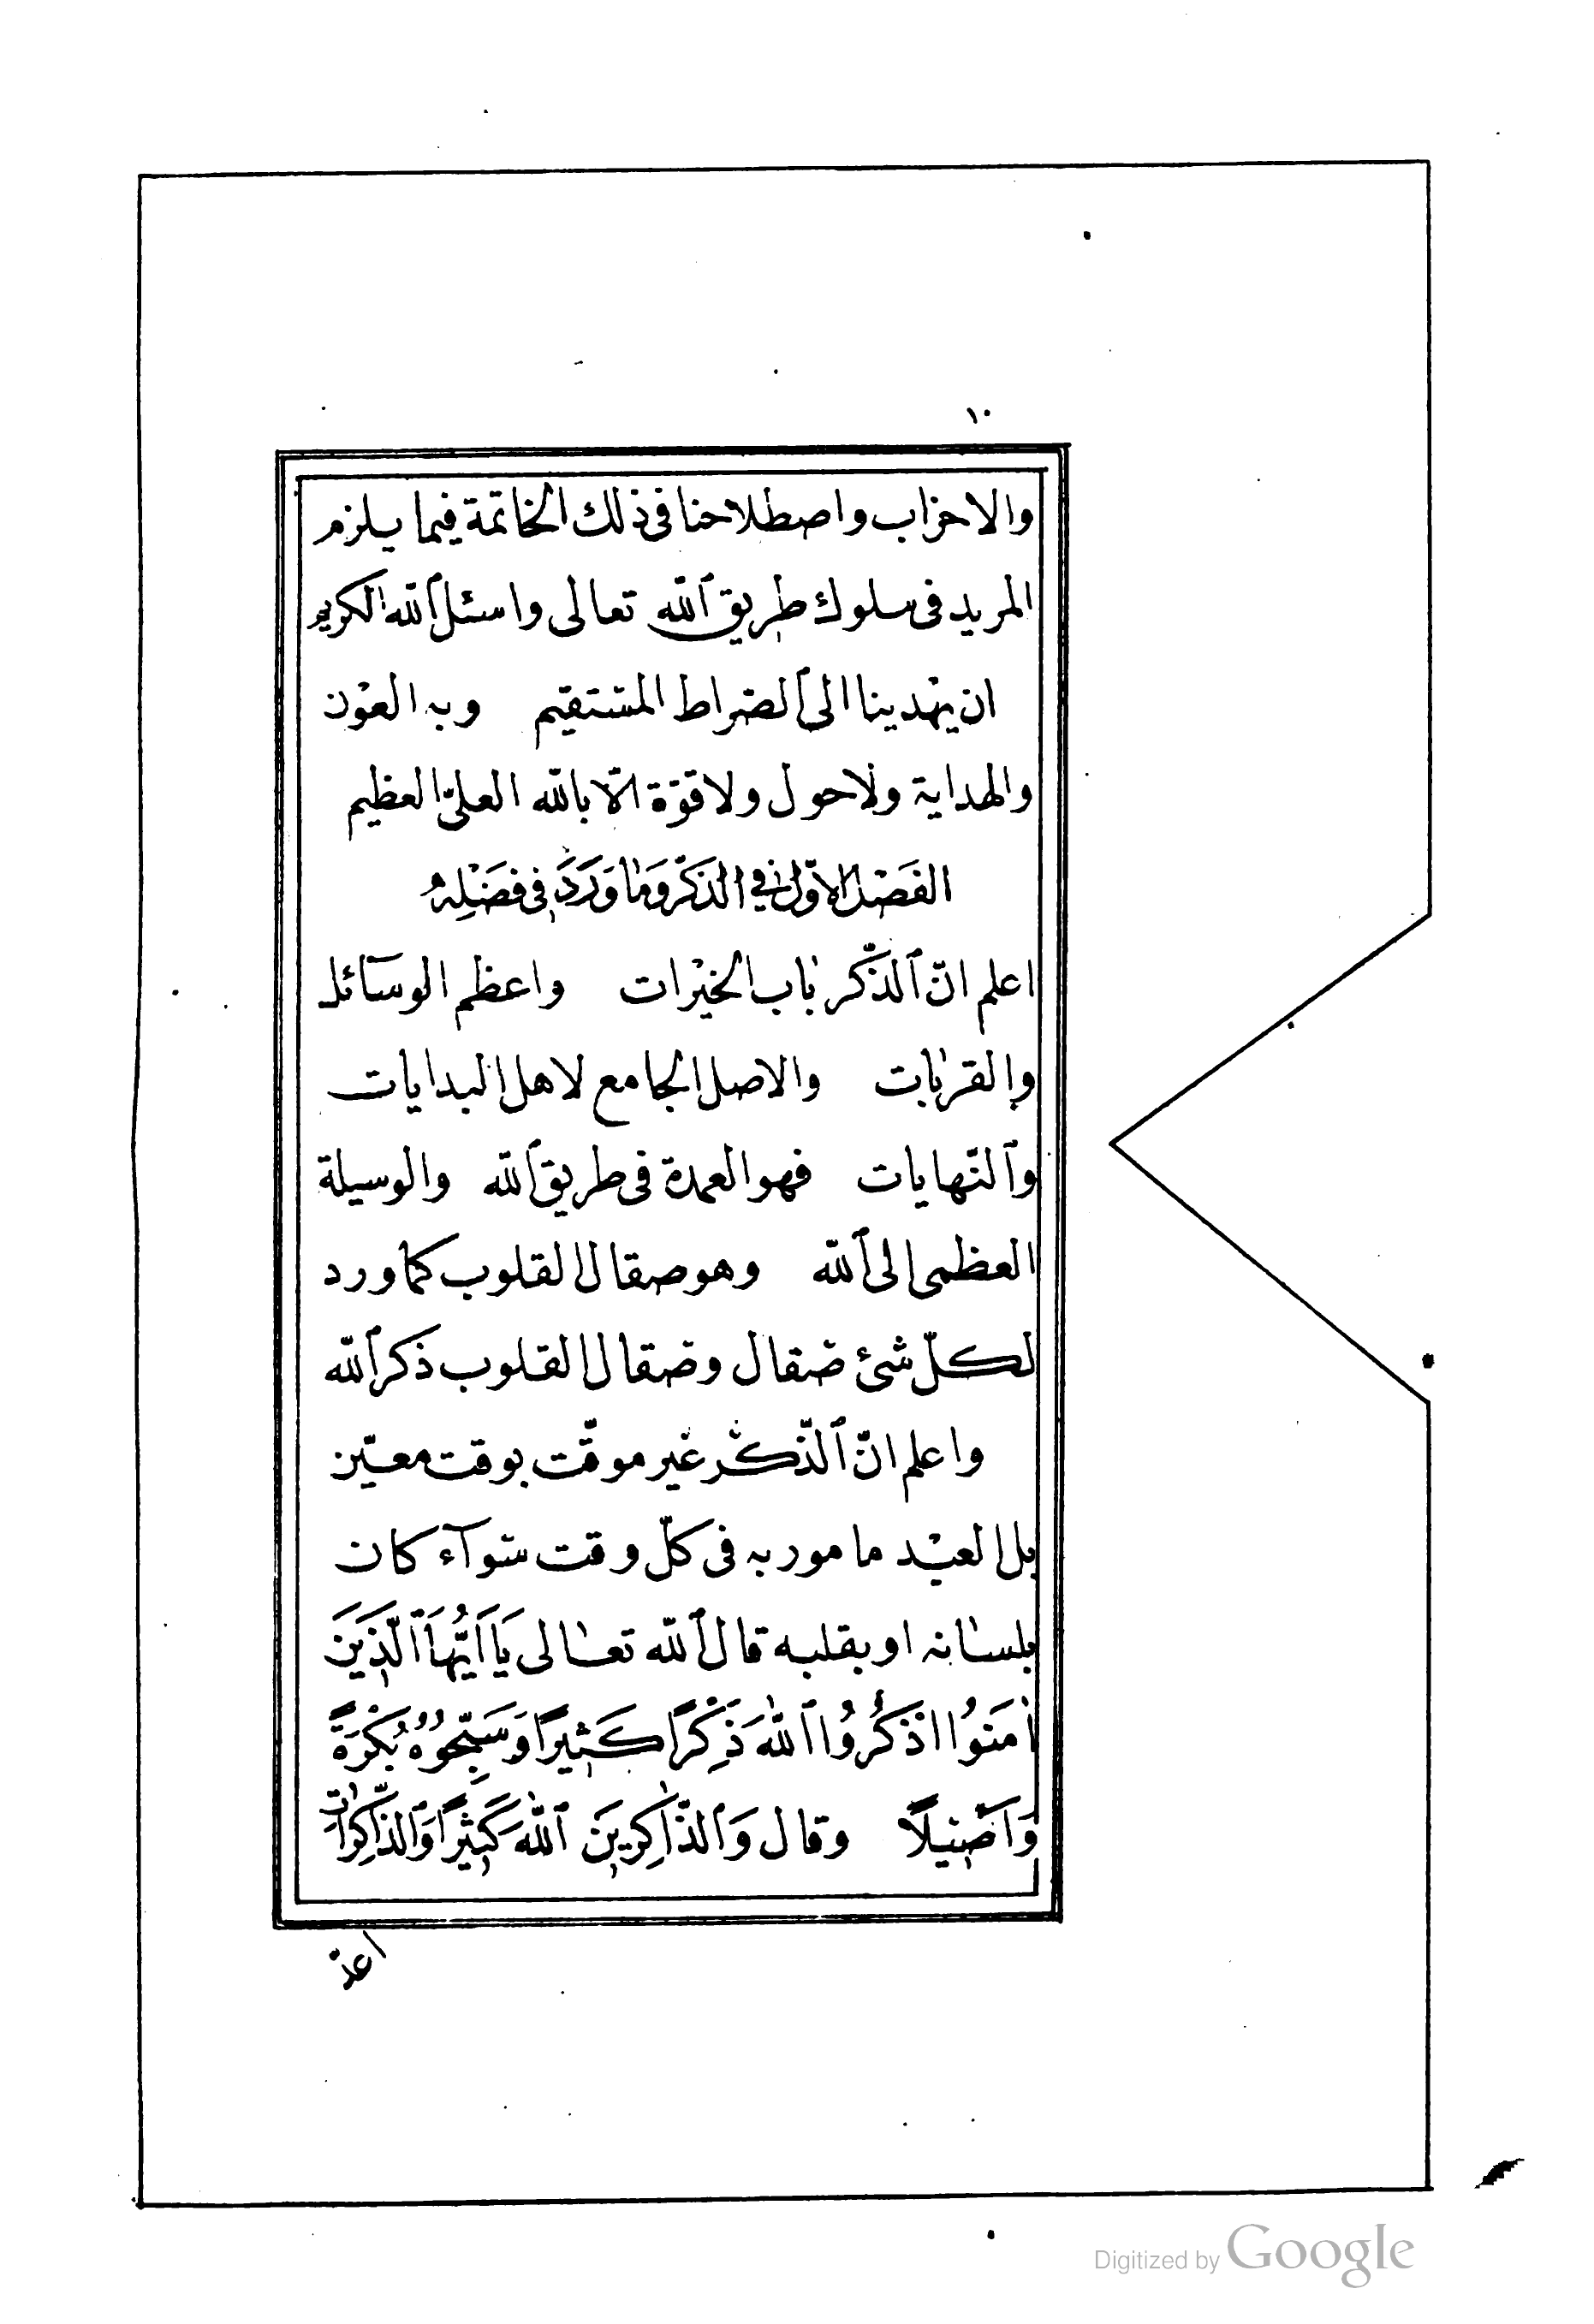 ١٠
والاحزاب واصطلاحنا فى ذلك الخاتمة فيما يلزم
المريد فى سلوك طريق ٱللّه تعالى واسئل ٱللّه الكريم
ان يهْدينا الى ٱلصّراط المسْتقيم وبه العوْن
والهداية ولاحول ولا قوّة الّا باللّه العلىّ العظيم
الفَصْل الاوّل في الذكْر وَمٰا وَرَدَ فِى فضْلِهِ
اعلم انّ ٱلذّكر بٰاب الخيْرات واعظم الوسآئل
والقربٰات والاصل الجامع لاهل البدايات
وٱلنّهايات فهو العمدة فى طريق ٱللّه والوسيلة
العظمى الى ٱللّه وهو صقال القلوب كما ورد
لكلّ شئ صقال وصقال القلوب ذكر ٱللّه
واعلم انّ ٱلذّكْر غير موقّت بوقت معيّن
بل العبْد مامور به فى كلّ وقت سوآء كان
بلسٰانه او بقلبه قال ٱللّه تعٰالى يَا اَيُّهَا ٱلَّذِينَ
اٰمَنُوا اذْكُرُوا ٱللّٰهَ ذِكْرًا كَثِيرًا وَسَبِّحُوهُ بُكْرَةً
وَاَصِيلًا وقال وَٱلذّٰاكِرِينَ ٱللّٰهَ كَثِيرًا وَٱلذّٰاكِرٰاتِ
اعدّ
Digitized by Google